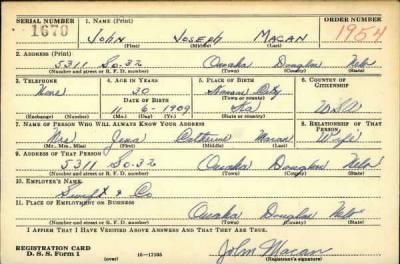 SERIAL NUMBER 1. NAME (Print) ORDER NUMBER
1670 John Joseph Macan 1954
(First) (Middle) (Last)
2. ADDRESS (Print)
5311 So. 32 Omaha Douglas Nebr
(Number and street or R. F. D. number) (Town) (County) (State)
3. TELEPHONE 4. AGE IN YEARS 5. PLACE OF BIRTH 6. COUNTRY OF CITIZENSHIP
None 30 Kansas City
DATE OF BIRTH (Town or county)
11-6-1909 Ka USA
(Exchange) (Number) (Mo.) (Day) (Yr.) (State or country)
7. NAME OF PERSON WHO WILL ALWAYS KNOW YOUR ADDRESS 8. RELATIONSHIP OF THAT PERSON
Mrs Catherine Macan Wife
(Mr., Mrs., Miss) (First) (Middle) (Last)
9. ADDRESS OF THAT PERSON
5311 So. 32 Omaha Douglas Nebr
(Number and street or R. F. D. number) (Town) (County) (State)
10. EMPLOYER'S NAME
Swift & Co
11. PLACE OF EMPLOYMENT OR BUSINESS
Omaha Douglas Nebr
(Number and street or R. F. D. number) (Town) (County) (State)
I AFFIRM THAT I HAVE VERIFIED ABOVE ANSWERS AND THAT THEY ARE TRUE.
REGISTRATION CARD
D. S. S. Form 1 (over) 16-17105 John Macan
(Registrant's signature)